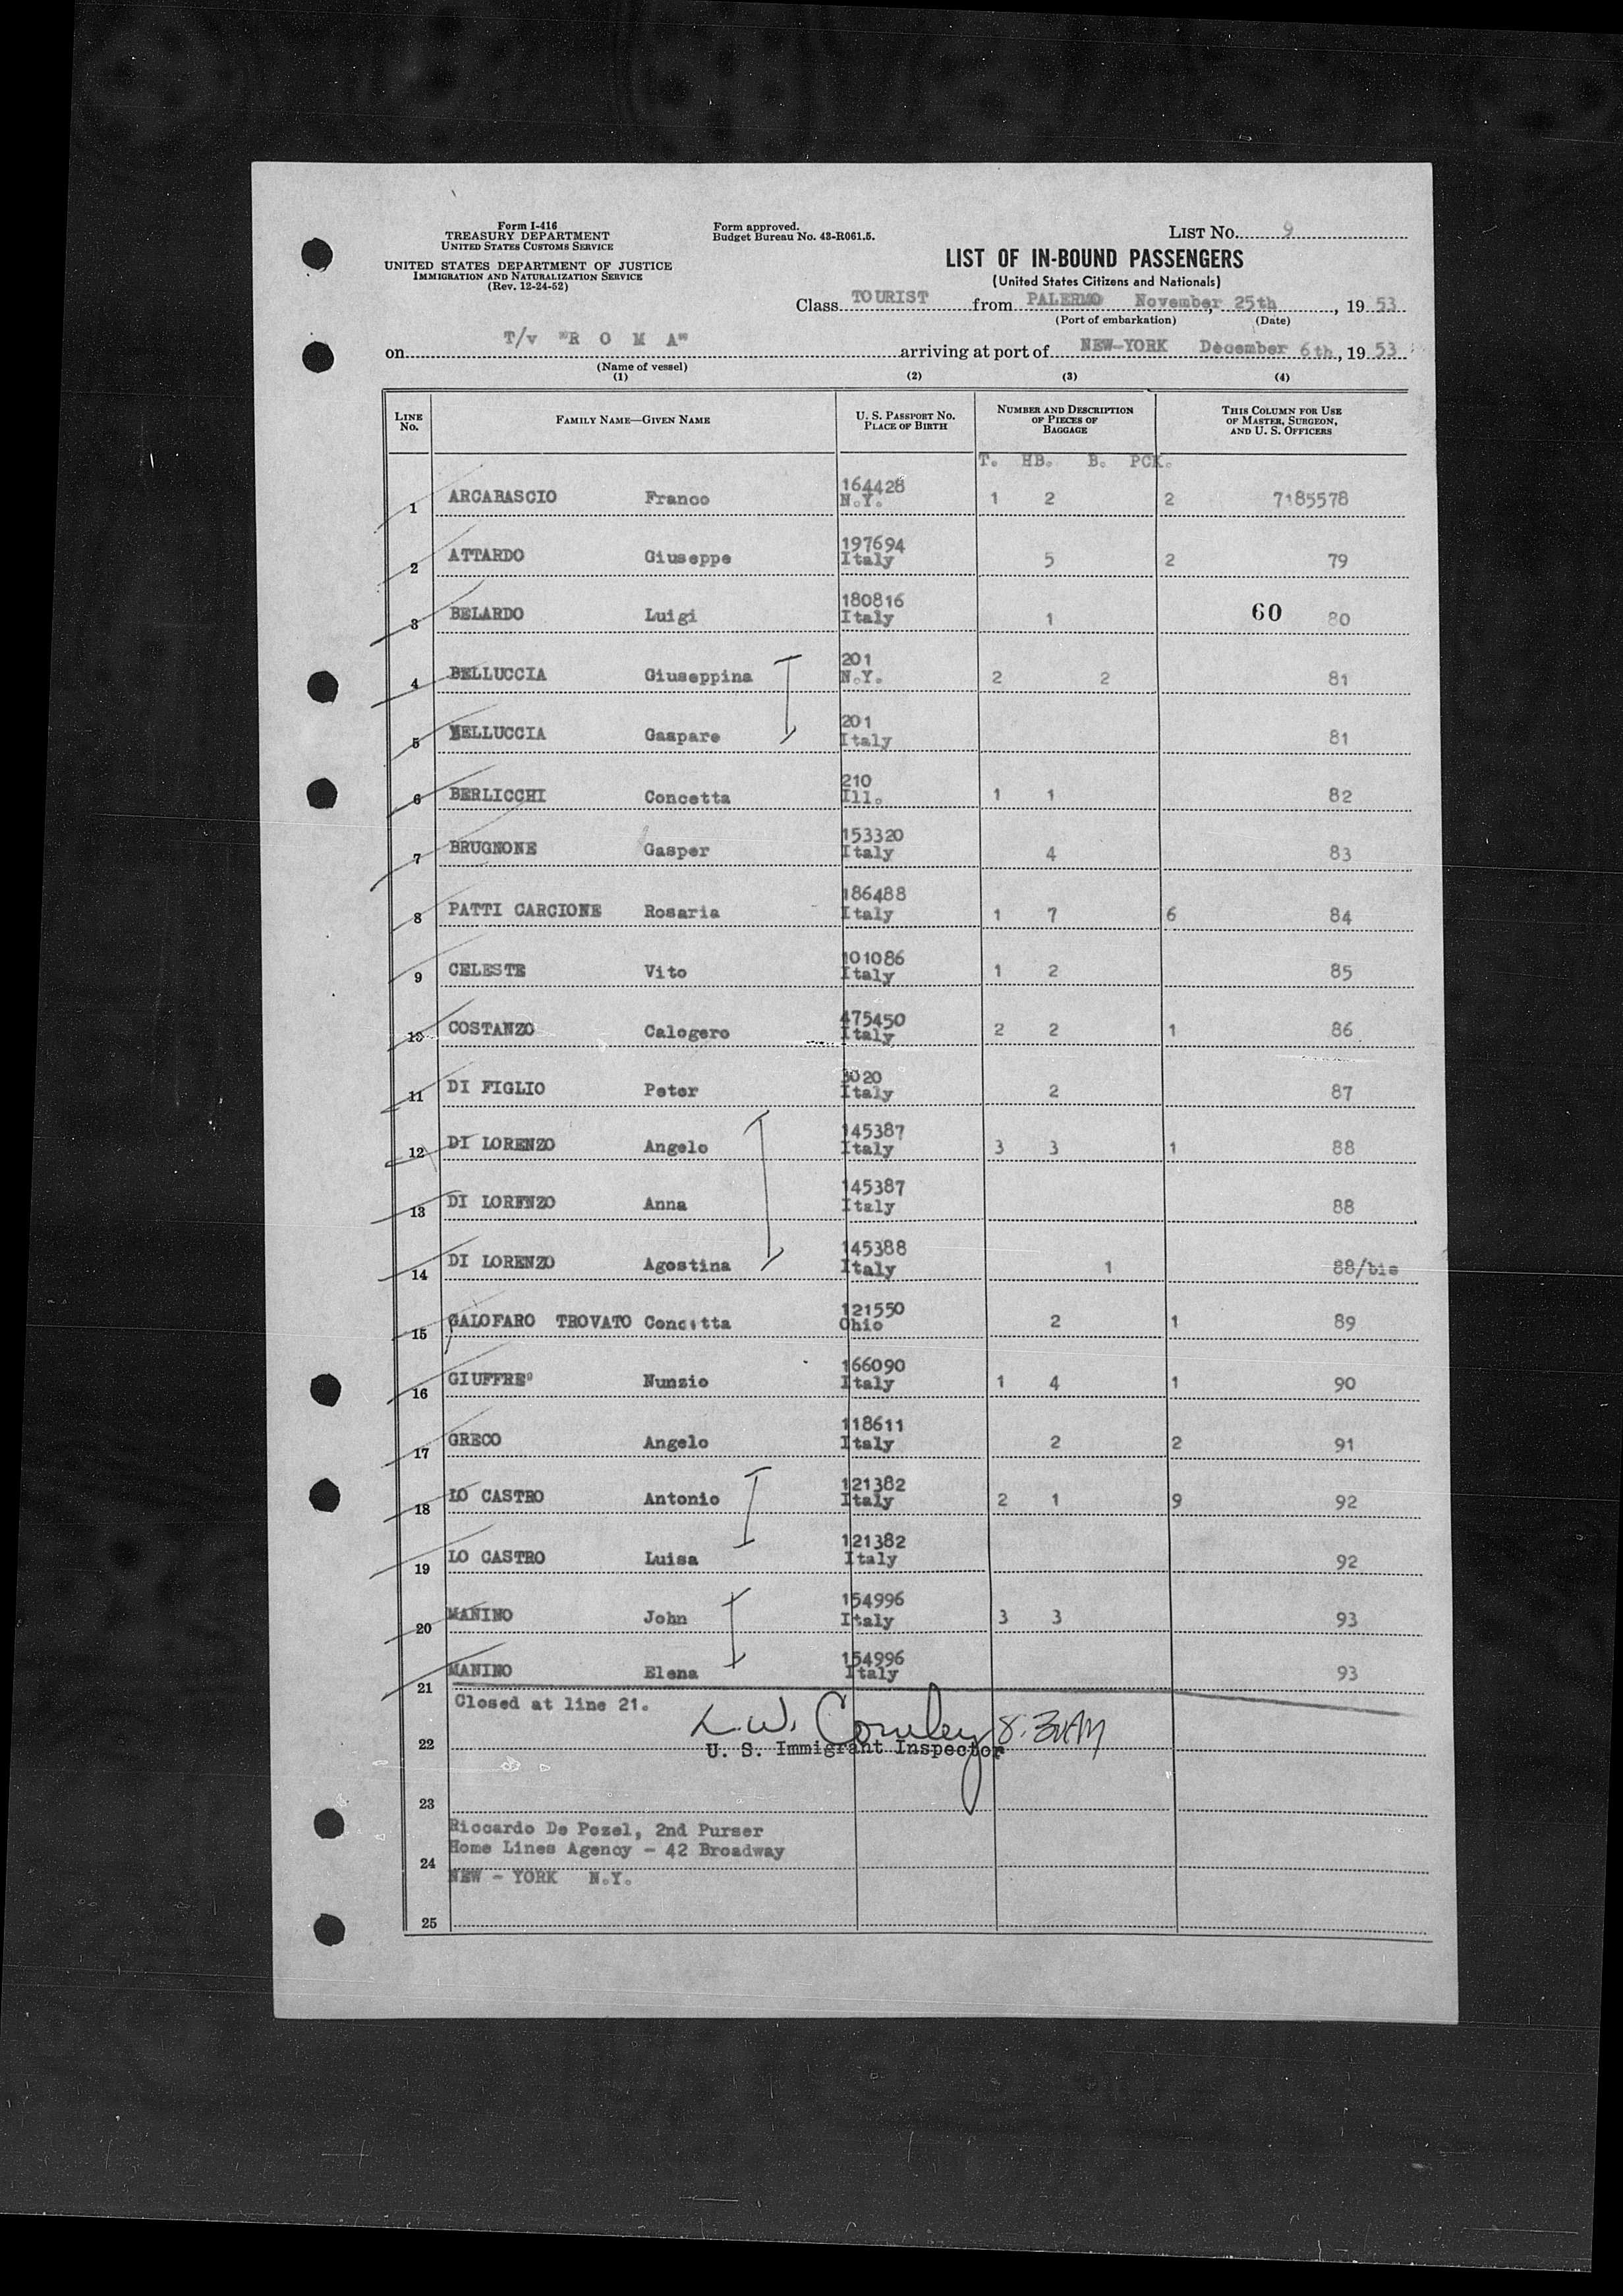 Form I-416
TREASURY DEPARTMENT
UNITED STATES CUSTOMS SERVICE
UNITED STATES DEPARTMENT OF JUSTICE
IMMIGRATION AND NATURALIZATION SERVICE
(Rev. 12-24-52)
Form approved.
Budget Bureau No. 43-R061.5.
LIST NO. 9
LIST OF IN-BOUND PASSENGERS
(United States Citizens and Nationals)
Class TOURIST from PALERMO November, 25th, 19 53
(Port of embarkation) (Date)
on T/v "R O M A" arriving at port of NEW-YORK December 6th, 19 53
(Name of vessel)
(1) (2) (3) (4)
LINE No. FAMILY NAME—GIVEN NAME U. S. PASSPORT NO. PLACE OF BIRTH NUMBER AND DESCRIPTION OF PIECES OF BAGGAGE THIS COLUMN FOR USE OF MASTER, SURGEON, AND U. S. OFFICERS
T. HB. B. PCK.
1 ARCABASCIO Franco 164428 N.Y. 1 2 2 7185578
2 ATTARDO Giuseppe 197694 Italy 5 2 79
3 BELARDO Luigi 180816 Italy 1 60 80
4 BELLUCCIA Giuseppina 201 N.Y. 2 2 81
5 BELLUCCIA Gaspare 201 Italy 81
6 BERLICCHI Concetta 210 Ill. 1 1 82
7 BRUGNONE Gasper 153320 Italy 4 83
8 PATTI CARCIONE Rosaria 186488 Italy 1 7 6 84
9 CELESTE Vito 101086 Italy 1 2 85
10 COSTANZO Calogero 475450 Italy 2 2 1 86
11 DI FIGLIO Peter 3020 Italy 2 87
12 DI LORENZO Angelo 145387 Italy 3 3 1 88
13 DI LORENZO Anna 145387 Italy 88
14 DI LORENZO Agostina 145388 Italy 1 88/bis
15 GALOFARO TROVATO Concetta 121550 Ohio 2 1 89
16 GIUFFRE' Nunzio 166090 Italy 1 4 1 90
17 GRECO Angelo 118611 Italy 2 2 91
18 LO CASTRO Antonio 121382 Italy 2 1 9 92
19 LO CASTRO Luisa 121382 Italy 92
20 MANINO John 154996 Italy 3 3 93
21 MANINO Elena 154996 Italy 93
Closed at line 21.
L.W. Cowley 8:30AM
22 U. S. Immigrant Inspector
23
Riccardo De Pozel, 2nd Purser
Home Lines Agency - 42 Broadway
24
NEW - YORK N.Y.
25